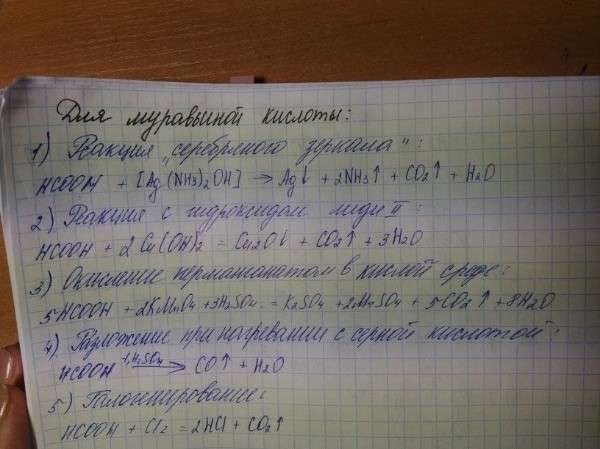 Для муравьиной кислоты:
1) Реакция „серебряного зеркала":
HCOOH + [Ag(NH3)2OH] → Ag↓ + 2NH3↑ + CO2↑ + H2O
2) Реакция с гидроксидом меди II:
HCOOH + 2Cu(OH)2 = Cu2O↓ + CO2↑ + 3H2O
3) Окисление перманганатом в кислой среде:
5HCOOH + 2KMnO4 + 3H2SO4 = K2SO4 + 2MnSO4 + 5CO2↑ + 8H2O
4) Разложение при нагревании с серной кислотой:
HCOOH t,H2SO4→ CO↑ + H2O
5) Галогенирование:
HCOOH + Cl2 = 2HCl + CO2↑